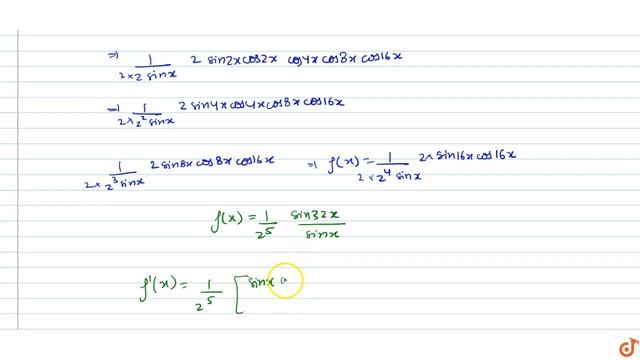 ⇒ 1/(2×2 sinx) 2 sin2x cos2x cos4x cos8x cos16x
⇒ 1/(2×2² sinx) 2 sin4x cos4x cos8x cos16x
1/(2×2³ sinx) 2 sin8x cos8x cos16x ⇒ f(x) = 1/(2×2⁴ sinx) 2× sin16x cos16x
f(x) = 1/2⁵ sin32x/sinx
f'(x) = 1/2⁵ [sinx